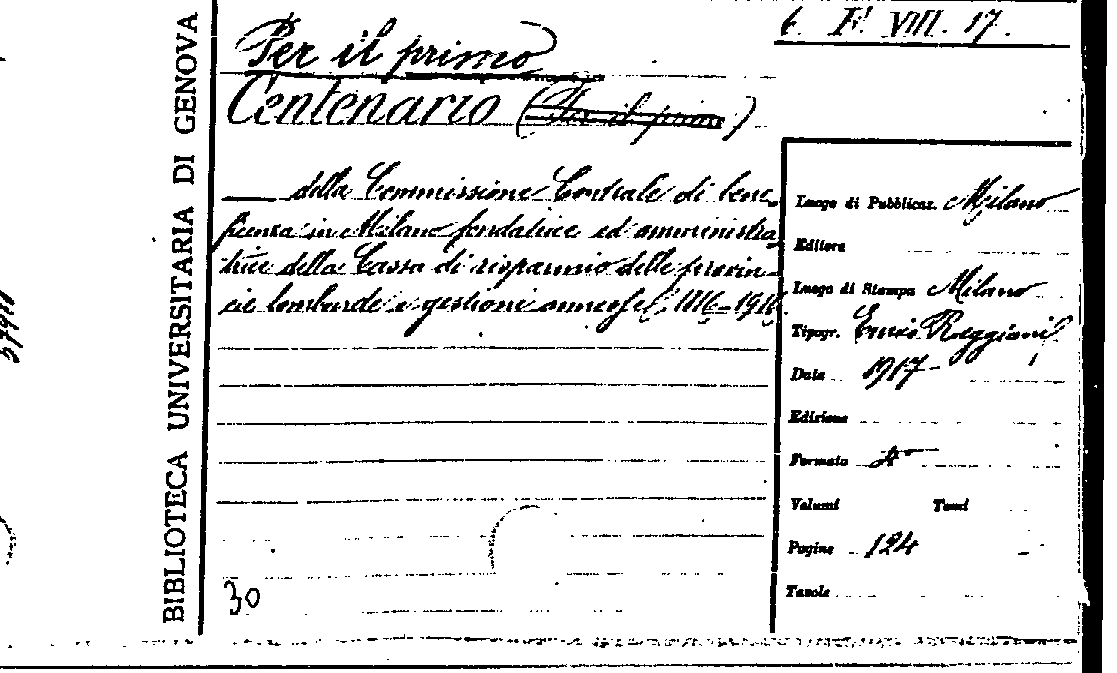 6. F. VIII. 17.
Per il primo
Centenario (Per il primo)
della Commissione Centrale di bene-
ficenza in Milano fondatrice ed amministra-
trice della Cassa di risparmio delle provin-
cie lombarde e gestioni annesse (1816-1916)
30
BIBLIOTECA UNIVERSITARIA DI GENOVA
Luogo di Pubblicaz. Milano
Editore
Luogo di Stampa Milano
Tipogr. Reggiani
Data 1917
Edizione
Formato
Volumi Tomi
Pagine 124
Tavole